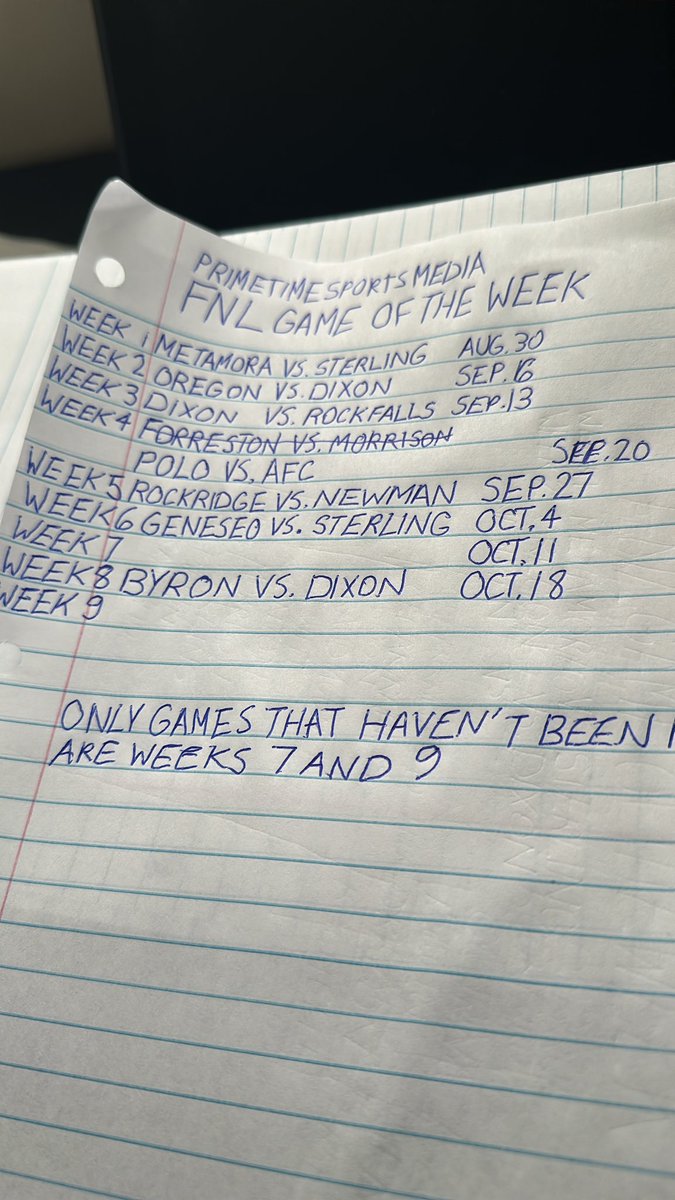 PRIMETIME SPORTS MEDIA
FNL GAME OF THE WEEK
WEEK 1 METAMORA VS. STERLING AUG. 30
WEEK 2 OREGON VS. DIXON SEP.
WEEK 3 DIXON VS. ROCKFALLS SEP. 13
WEEK 4 FORRESTON VS. MORRISON
POLO VS. AFC SEP. 20
WEEK 5 ROCKRIDGE VS. NEWMAN SEP. 27
WEEK 6 GENESEO VS. STERLING OCT. 4
WEEK 7 OCT. 11
WEEK 8 BYRON VS. DIXON OCT. 18
WEEK 9
ONLY GAMES THAT HAVEN'T BEEN
ARE WEEKS 7 AND 9